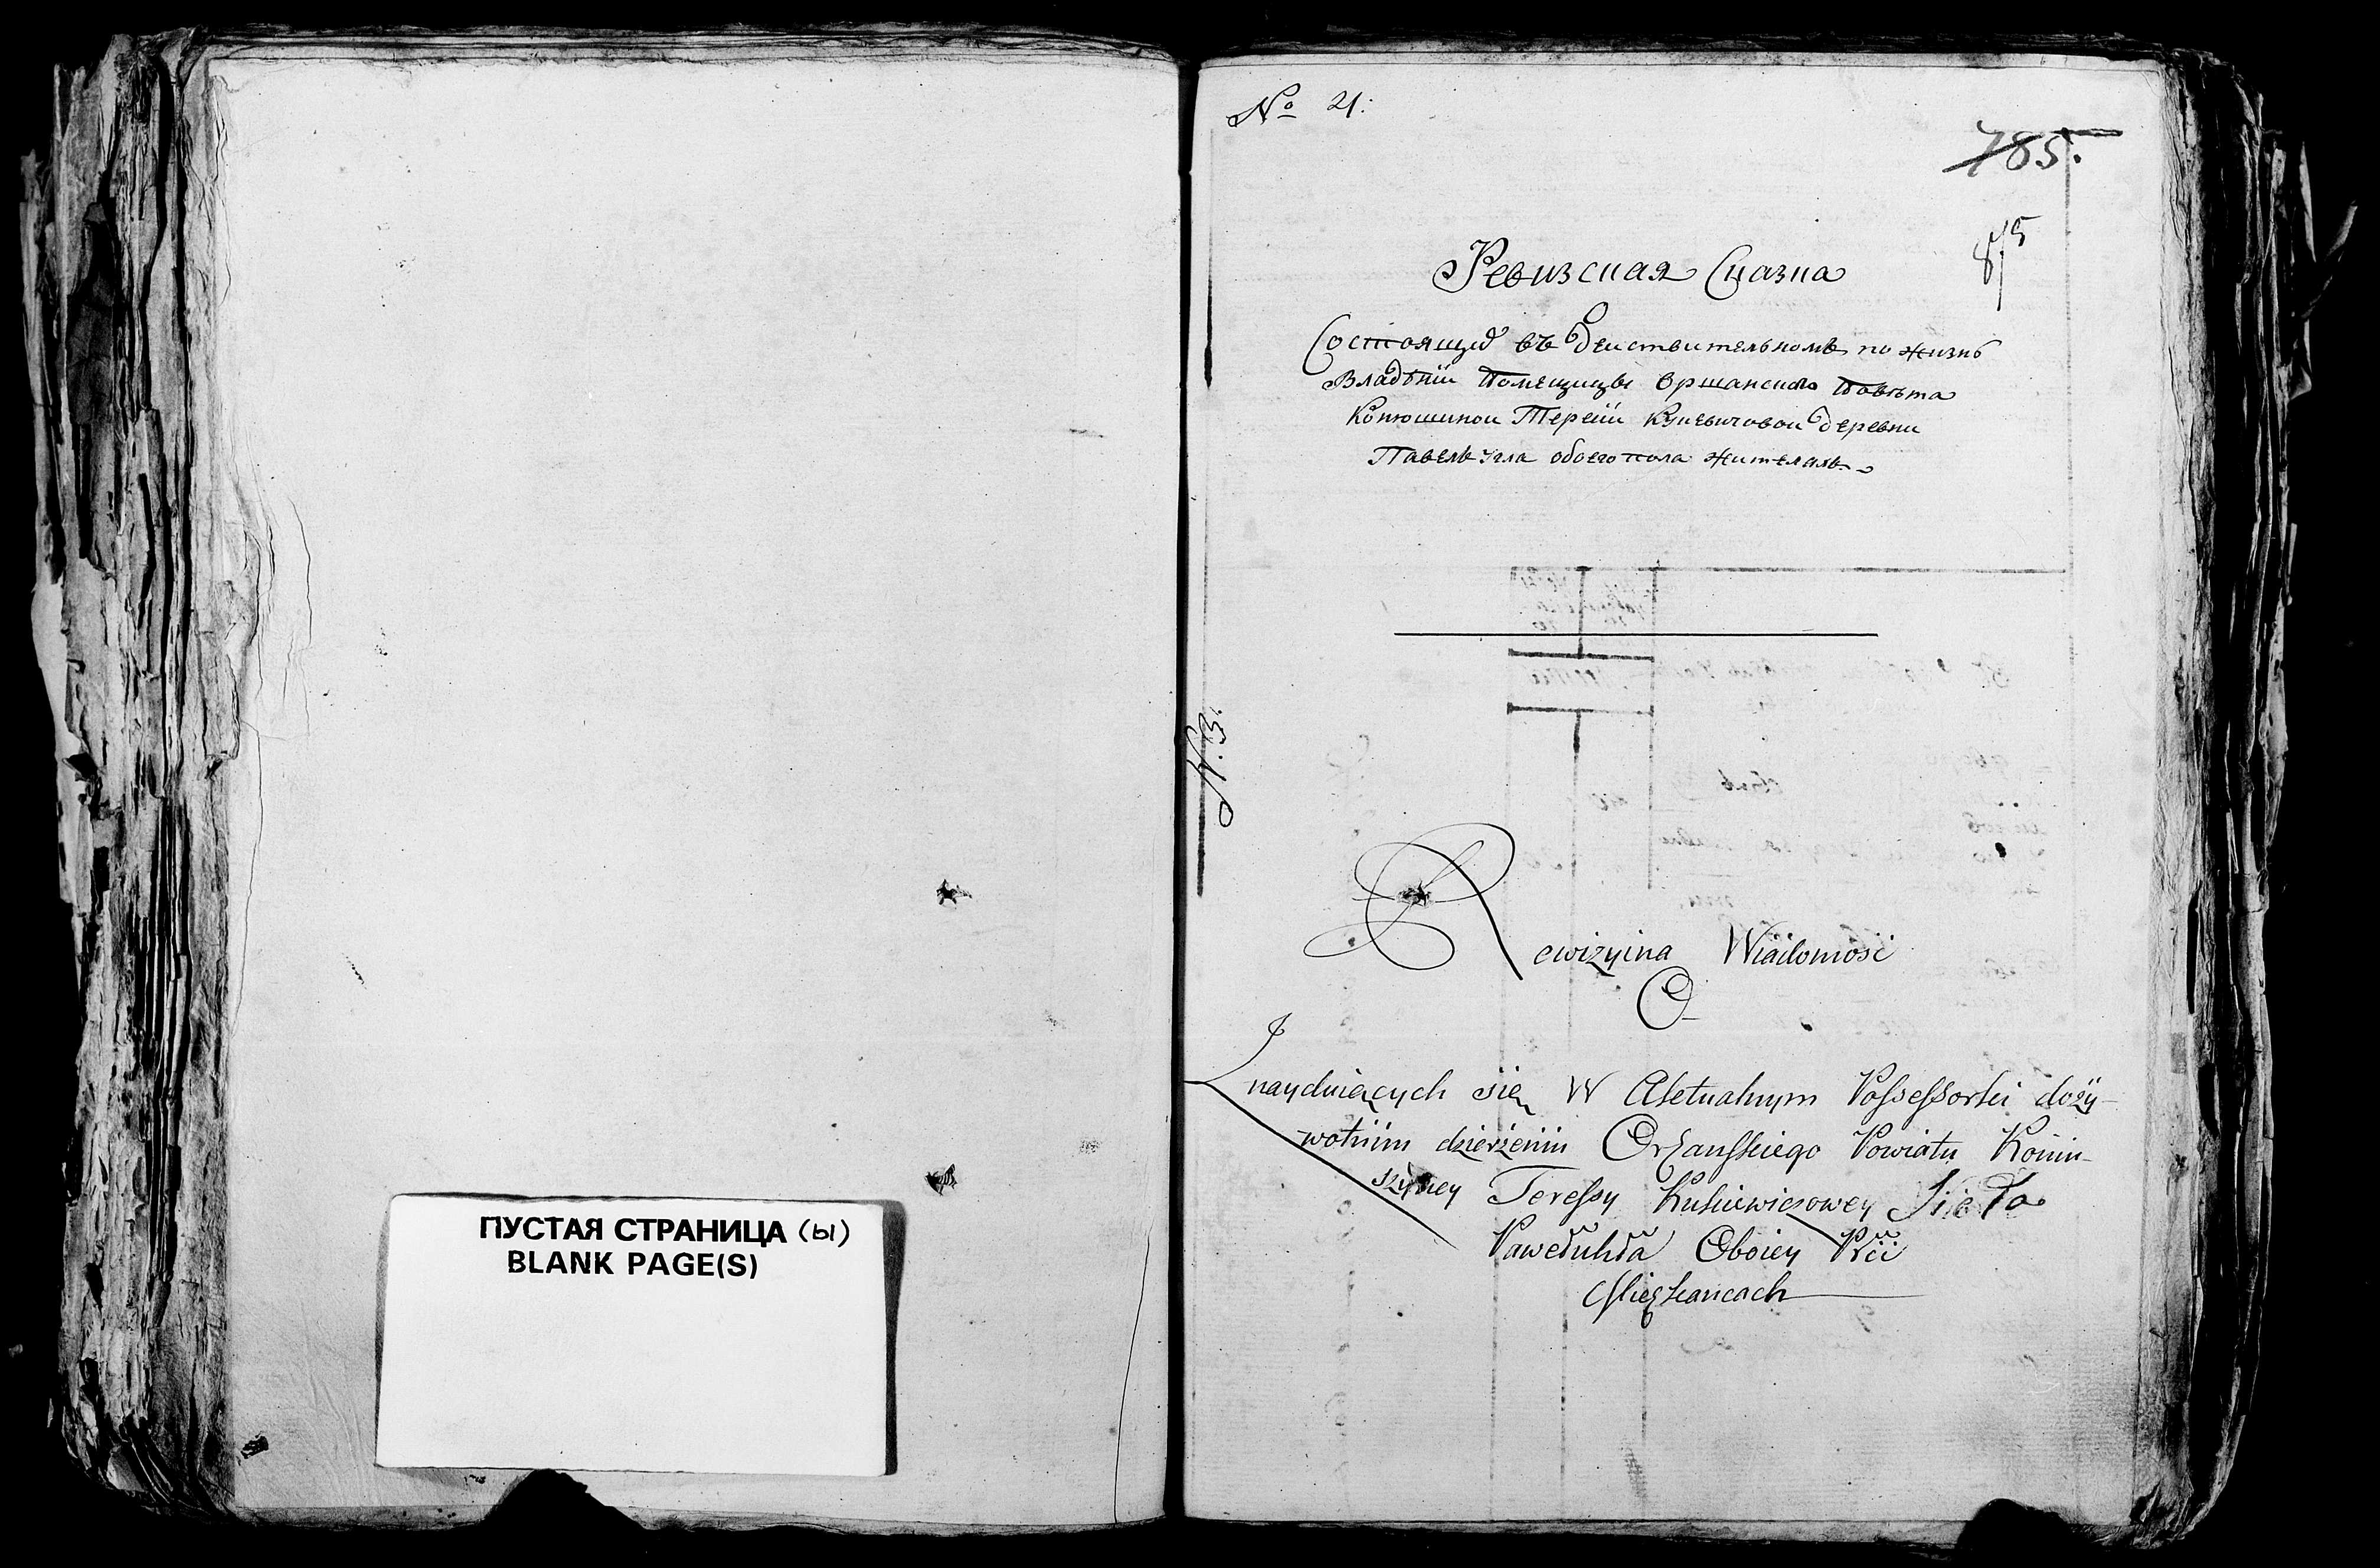 ПУСТАЯ СТРАНИЦА (Ы)
BLANK PAGE(S)
№ 21.
785.
875
Ревизская Сказка
Состоящим въ действительномъ по жизнь
Владѣніи Помещицы Оршанского Повѣта
Конюшиной Терезіи Куцевичовой деревни
обоего пола жителямъ
Rewizyina Wiadomość
O
Znayduiących się W Aktualnym Possessorki doży-
wotnim dzierżeniu Orszańskiego Powiatu Koniu-
szyney Teressy Sioła
Oboiey Płci
Mieszkancach